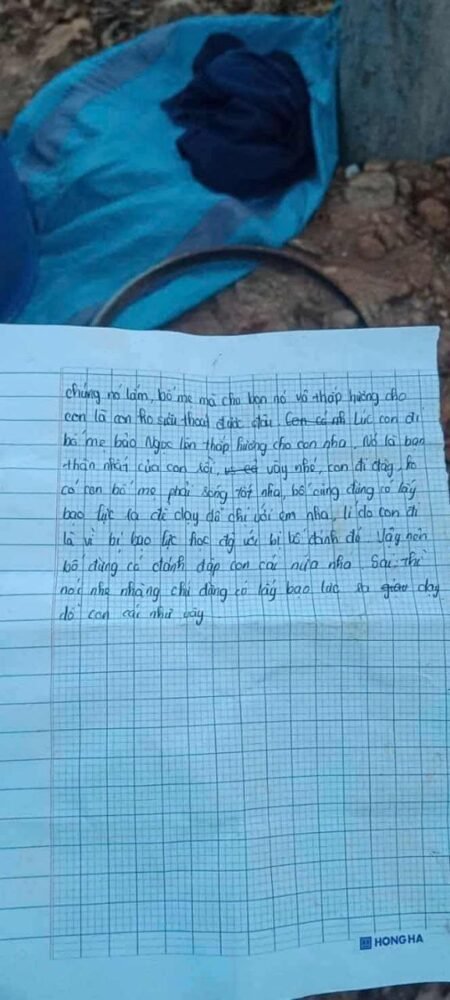 chúng nó lắm, bố mẹ mà cho bọn nó vô thắp hương cho
con là con ko siêu thoát được đâu Lúc con đi
bố mẹ bảo Ngọc lên thắp hương cho con nha, Nó là bạn
thân nhất của con rồi, vậy nhé, con đi đây, ko
có con bố mẹ phải sống tốt nha, bố cũng đừng có lấy
bạo lực ra để dạy dỗ chị với em nha, lí do con đi
là vì bị bạo lực học đg với bị bố đánh đó Vậy nên
bố đừng có đánh đập con cái nữa nha Sai thì
nói nhẹ nhàng chứ đừng có lấy bạo lực ra dạy
dỗ con cái như vậy
HONG HA